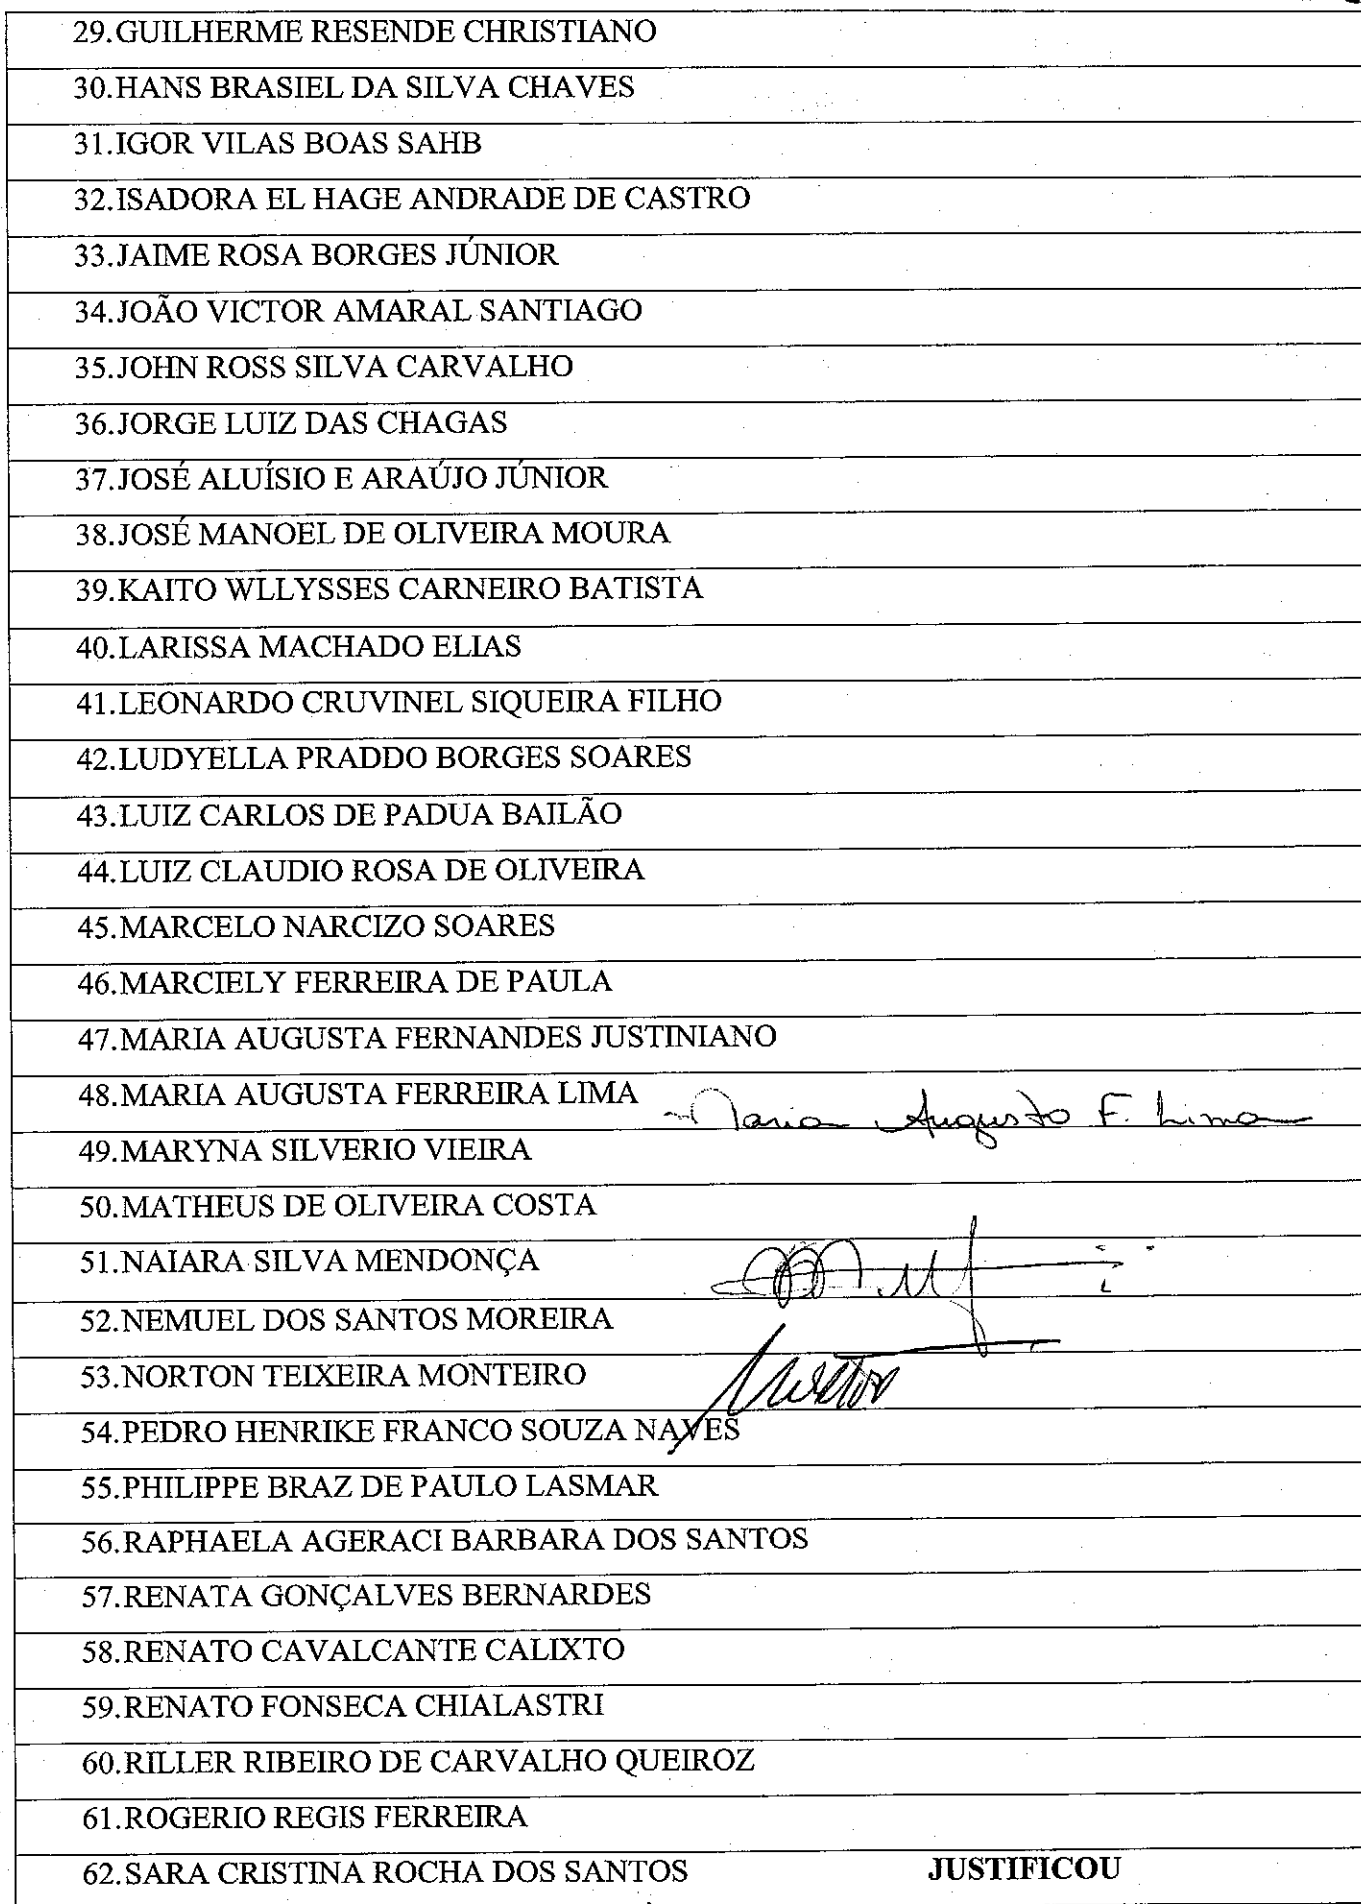 29.GUILHERME RESENDE CHRISTIANO
30.HANS BRASIEL DA SILVA CHAVES
31.IGOR VILAS BOAS SAHB
32.ISADORA EL HAGE ANDRADE DE CASTRO
33.JAIME ROSA BORGES JÚNIOR
34.JOÃO VICTOR AMARAL SANTIAGO
35.JOHN ROSS SILVA CARVALHO
36.JORGE LUIZ DAS CHAGAS
37.JOSÉ ALUÍSIO E ARAÚJO JÚNIOR
38.JOSÉ MANOEL DE OLIVEIRA MOURA
39.KAITO WLLYSSES CARNEIRO BATISTA
40.LARISSA MACHADO ELIAS
41.LEONARDO CRUVINEL SIQUEIRA FILHO
42.LUDYELLA PRADDO BORGES SOARES
43.LUIZ CARLOS DE PADUA BAILÃO
44.LUIZ CLAUDIO ROSA DE OLIVEIRA
45.MARCELO NARCIZO SOARES
46.MARCIELY FERREIRA DE PAULA
47.MARIA AUGUSTA FERNANDES JUSTINIANO
48.MARIA AUGUSTA FERREIRA LIMA Maria Augusta F. Lima
49.MARYNA SILVERIO VIEIRA
50.MATHEUS DE OLIVEIRA COSTA
51.NAIARA SILVA MENDONÇA
52.NEMUEL DOS SANTOS MOREIRA
53.NORTON TEIXEIRA MONTEIRO
54.PEDRO HENRIKE FRANCO SOUZA NAVES
55.PHILIPPE BRAZ DE PAULO LASMAR
56.RAPHAELA AGERACI BARBARA DOS SANTOS
57.RENATA GONÇALVES BERNARDES
58.RENATO CAVALCANTE CALIXTO
59.RENATO FONSECA CHIALASTRI
60.RILLER RIBEIRO DE CARVALHO QUEIROZ
61.ROGERIO REGIS FERREIRA
62.SARA CRISTINA ROCHA DOS SANTOS JUSTIFICOU